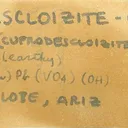 SCLOIZITE -
(CUPRODESCLOIZ
(earthy)
) Pb (VO4) (OH)
LOBE, ARIZ